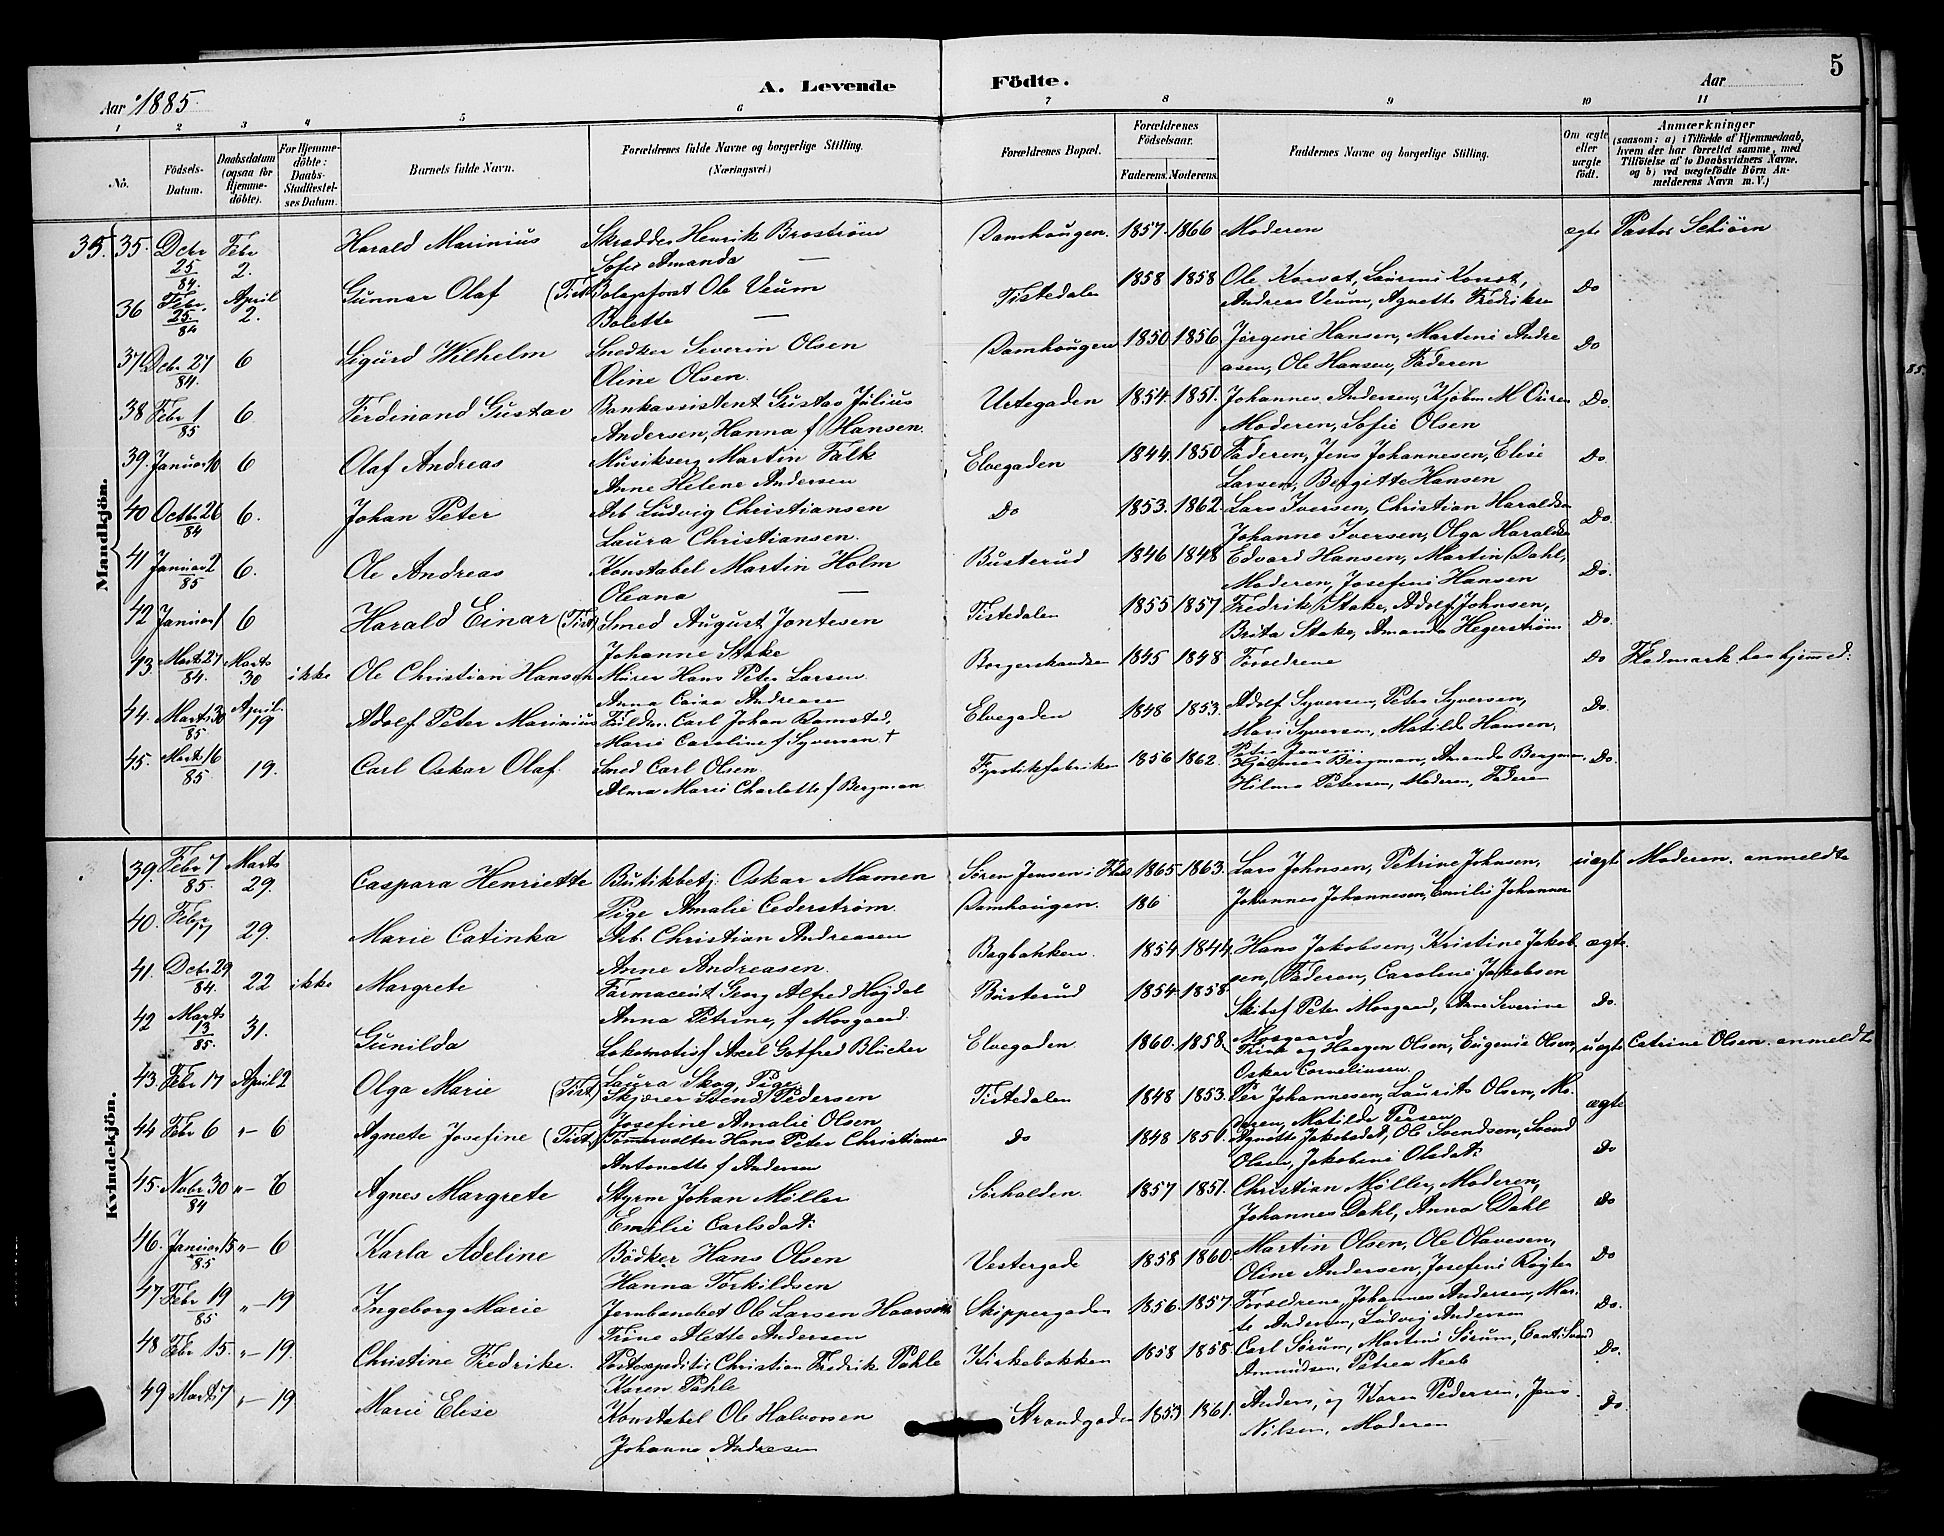 5
A. Levende Födte.
Aar 1885. Aar
1 2 3 4 5 6 7 8 9 10 11
No. Födsels-Datum. Daabsdatum (ogsaa for Hjemme-döbte). For Hjemme-döbte: Daabs-Stadfæstel-ses Datum. Barnets fulde Navn. Forældrenes fulde Navne og borgerlige Stilling. (Næringsvei.) Forældrenes Bopæl. Forældrenes Födselsaar. Faderens. Moderens. Faddernes Navne og borgerlige Stilling. Om ægte eller uægte födt. Anmærkninger (saasom: a) i Tilfælde af Hjemmedaab, hvem der har forrettet samme, med Tilföielse af to Daabsvidners Navne, og b) ved uægtefödte Börn Anmelderens Navn m. V.)
Mandkjön.
35. 35. Debr 25/84. Febr 2. Harald Marinius Skrædder Henrik Broström Damhaugen. 1857. 1866 Moderen ægte Pastor Schiörn
Sofie Amanda —
36 Febr. 25./84 April 2. Gunnar Olaf (Tist) Ole Veum Tistedalen 1858 1858 Ole Konst, Laurens Konst, Do
Bolette — Andreas Veum, Agnette Fredriksen
37 Debr 27/84. 6 Sigurd Wilhelm Snedker Severin Olsen Damhaugen 1850 1856. Jørgine Hansen, Martine Andre Do
Oline Olsen. asen, Ole Hansen, Faderen
38 Febr 1/85 6. Ferdinand Gustav Bankassistent Gustav Julius Urtegaden 1854. 1851. Johannes Andersen, Kjøbm M Do.
Andersen, Hanna f Hansen. Moderen, Sofie Olsen
39. Januar 10 6 Olaf Andreas Musikserg Martin Falk Elvegaden 1844. 1850 Faderen, Jens Johannesen, Elise Do
Anne Helene Andersen Larsen, Bergitte Hansen
40 Octbr 26/84 6. Johan Peter Arb Ludvig Christiansen Do 1853. 1862. Lars Iversen, Christian Haraldsen Do.
Laura Christiansen. Johanne Iversen, Olga Haraldsen
41 Januar 2/85 6. Ole Andreas Konstabel Martin Holm Busterud 1846 1848 Edvard Hansen, Martin Dahl, Do.
Oleana — Moderen, Josefine Hansen
42 Januar 1 6 Harald Einar (Tist) Smed August Jontesen Tistedalen 1855 1857 Fredrik Stake, Adolf Johnsen, Do.
Johanne Stake Brita Stake, Amanda Hegerström
43. Marts 27/84. Marts 30 ikke Ole Christian Hansen Murer Hans Peter Larsen Borgerskandsen 1845 1848 Forældrene Do Fladmark har hjemmed:
Anna Caisa Andreasen
44. Marts 30/85. April 19 Adolf Peter Marinius Carl Johan Ramstad, Elvegaden 1848 1853. Adolf Syversen, Peter Syversen, Do.
Marie Caroline f Syversen + Mari Syversen, Matilde Hansen,
Petra Jensen.
45. Marts 16/85. 19. Carl Oskar Olaf Smed Carl Olsen Fyrstikfabriken 1856 1862. Hjalmar Bergman, Amanda Bergman, Do.
Alma Marie Charlotte f Bergman Hilma Petersen, Moderen, Faderen
Kvindekjön.
39. Febr 7/85. Marts 29. Caspara Henriette Butikbetj: Oskar Mamen Søren Jensen i 1865 1863. Lars Johnsen, Petrine Johnsen, uægte Moderen anmeldte
Pige Amalie Cederstrøm. Damhaugen. 186 Johannes Johannesen, Emilie Johannes
40. Febr 7 29. Marie Catinka Arb. Christian Andreasen Bagbakken. 1854 1844. Hans Jakobsen, Kristine Jakob ægte.
Anne Andreasen. sen, Faderen, Caroline Jakobsen
41. Debr 29/84. 22 ikke Margrete Farmaceut Georg Alfred Høydal Busterud 1854 1858. Skibsf Peter Mosgaard, Anne Severine Do.
Anna Petrine, f Mosgaard. Mosgaard
42 Marts 13/85. 31. Gunilda Lokomotivf Axel Gotfred Blücher Elvegaden. 1860. 1858. Trine og Haagen Olsen, Eugenia Olsen, uægte Catrine Olsen. anmeldt
Laura Skog, Pige Oskar Corneliusen.
43. Febr 17 April 2 Olga Marie (Tist) Skjærer Svend Pedersen Tistedalen 1848 1853. Per Johannesen, Laurits Olsen, Mo. ægte
Josefine Amalie Olsen deren, Matilde Persen
44 Febr 6 „- 6 Agnete Josefine (Tist.) Hans Peter Christiansen Do 1848 1851. Agnette Jakobsdat, Ole Svendsen, Svend Do
Antonette f Andersen Olsen, Jakobine Olsdat:
45. Novbr 30/84 „- 6 Agnes Margrete Styrm Johan Møller Sørhalden. 1857 1851. Christian Møller, Moderen, Do
Emelie Carlsdat: Johannes Dahl, Anna Dahl
46. Januar 15/85 „- 6 Karla Adeline Bödker Hans Olsen Vestergade 1858 1860. Martin Olsen, Ole Olavesen, Do
Hanna Torkildsen Oline Andersen, Josefine Røgler
47 Febr 19/85 „- 19 Ingeborg Marie Jernbanebet Ole Larsen Skippergaden 1856. 1857. Forældrene, Johannes Andersen, Mar- Do.
Trine Alette Andersen te Andersen, Ludvig Andersen
48 Febr 15. „- 19. Christine Fredrikke. Postexpeditör Christian Fredrik Pahle Kirkebakken 1858 1858. Carl Sörum, Martine Sörum, Do.
Karen Pahle Amundsen, Petrea Neeb
49 Marts 7 „- 19 Marie Elise Konstabel Ole Halvorsen Strandgaden 1853 1861. Anders, og Karen Pedersen, Jens Do.
Johanne Andresen Nilsen, Moderen